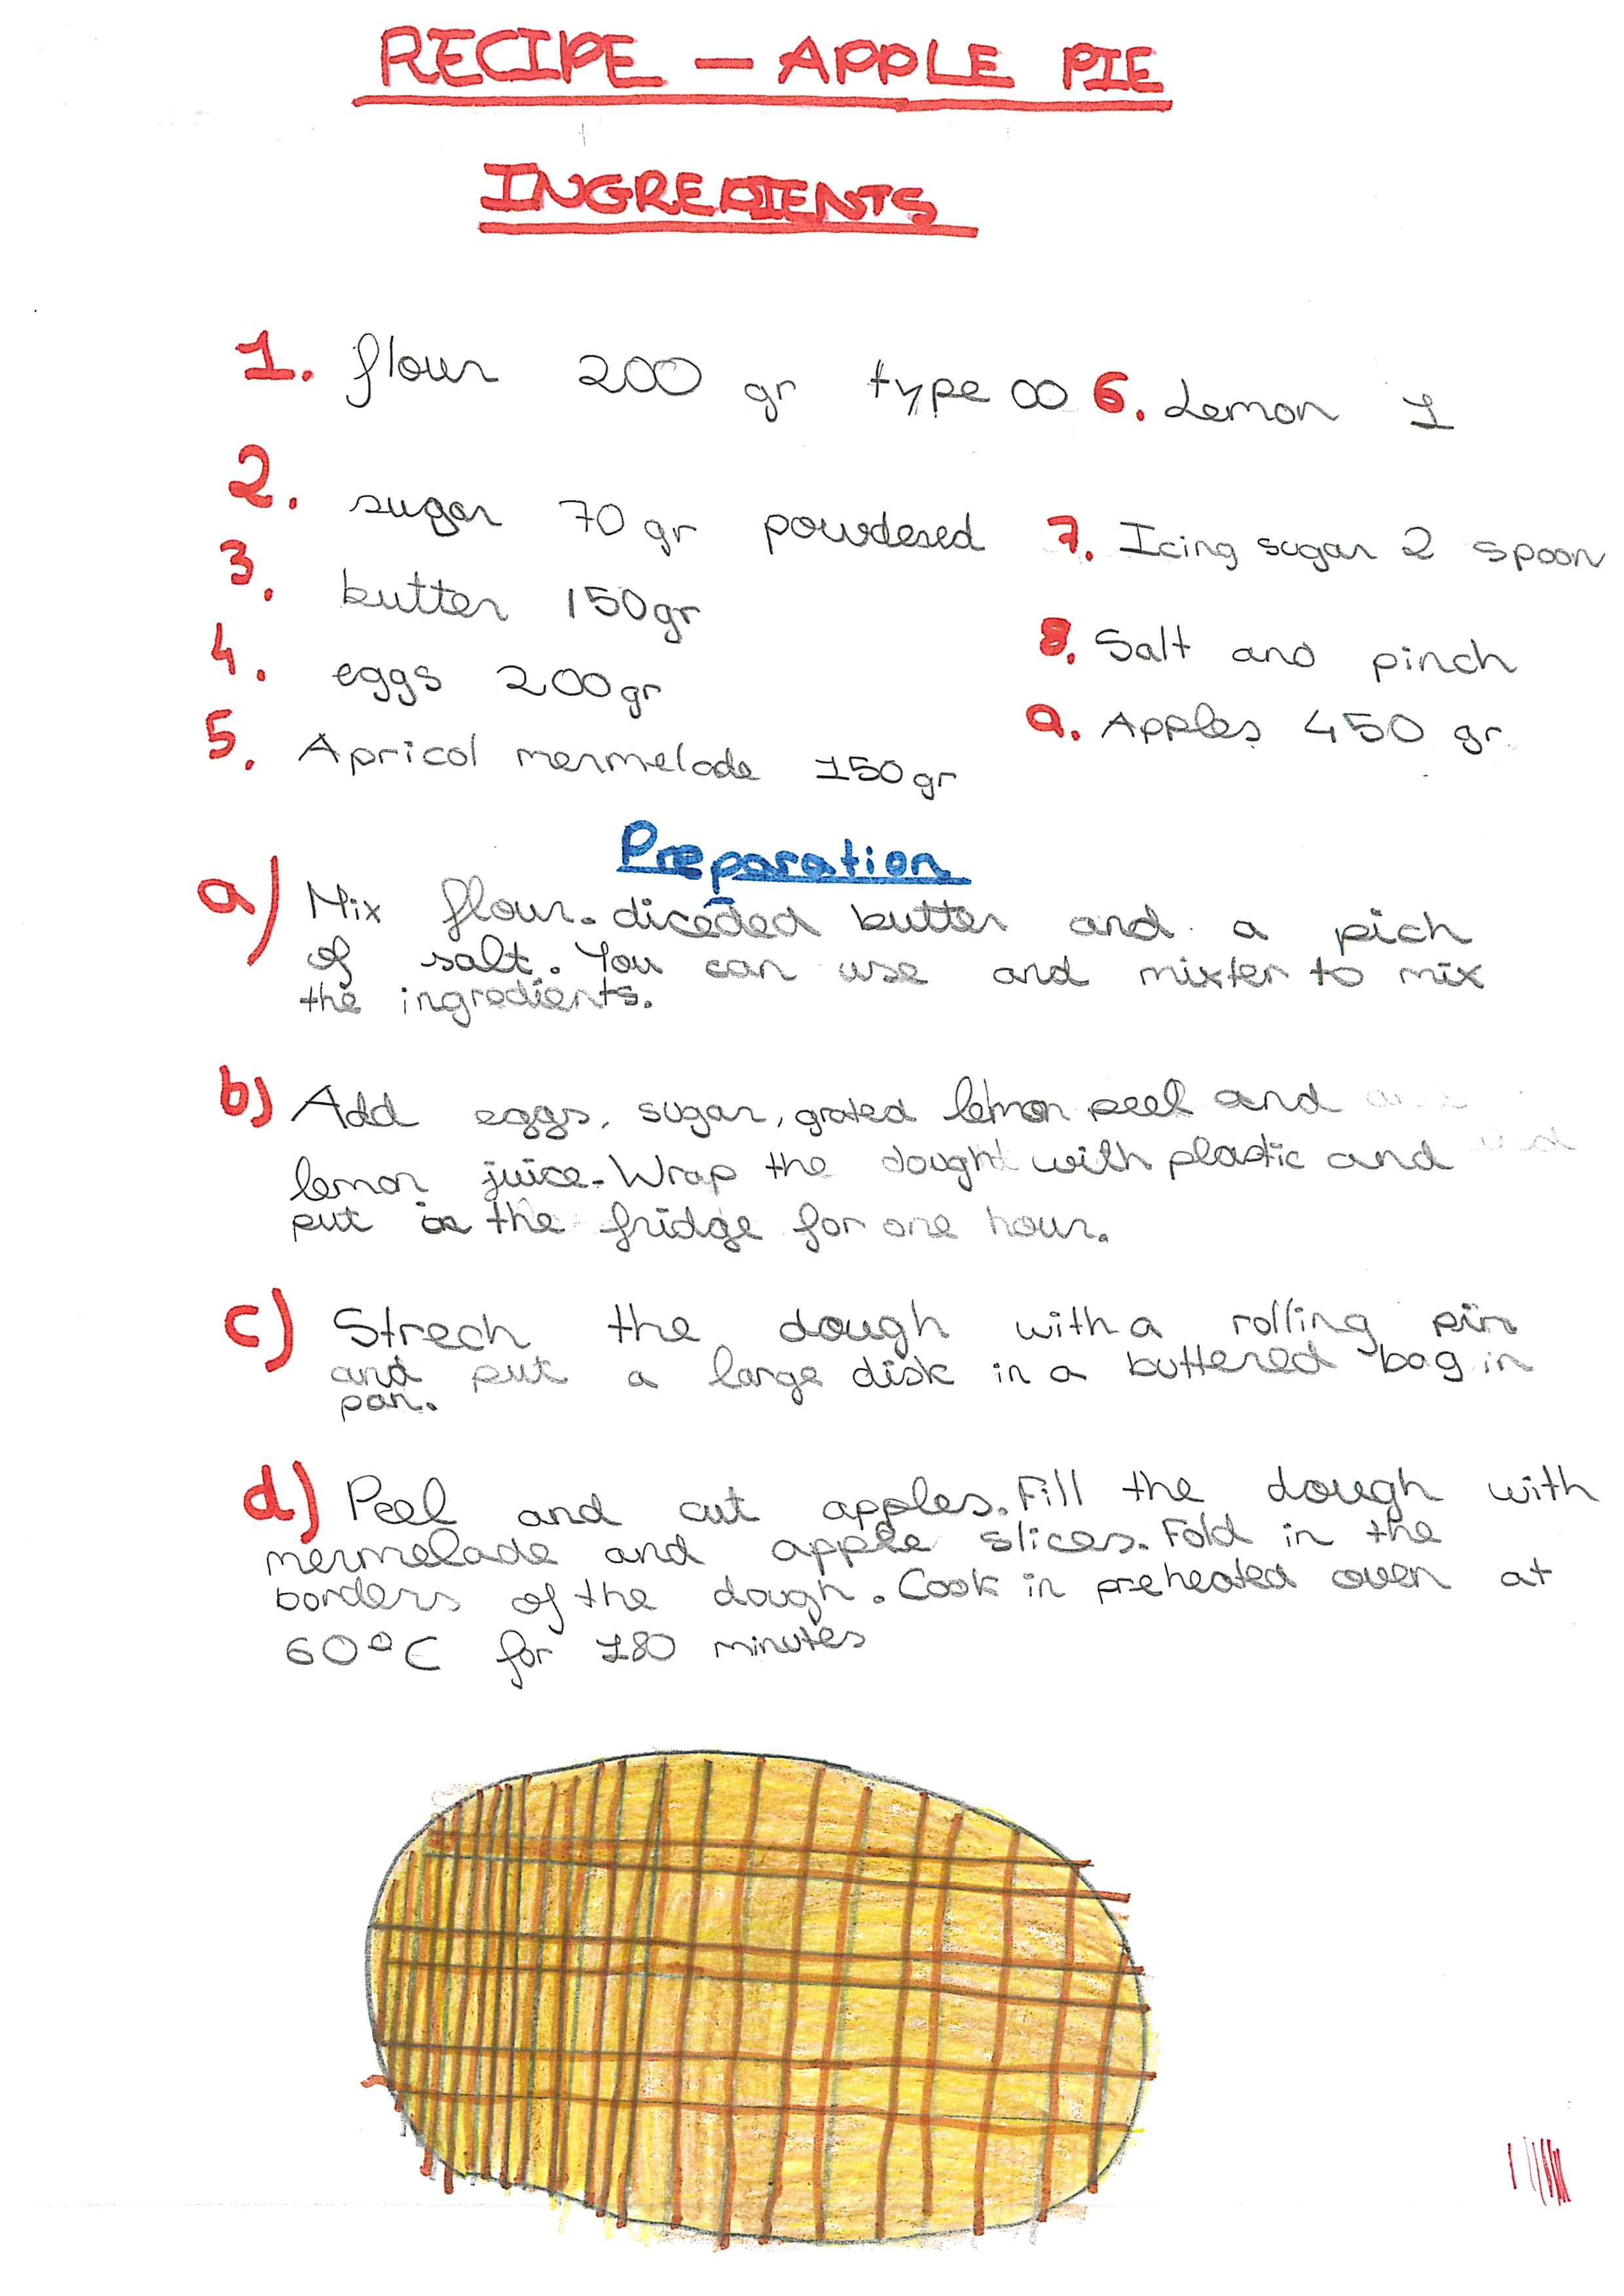 RECIPE – APPLE PIE
INGREDIENTS
1. flour 200 gr type 00
2. sugar 70 gr powdered
3. butter 150 gr
4. eggs 200 gr
5. Apricol mermelade 150 gr
6. Lemon 1
7. Icing sugar 2 spoon
8. Salt and pinch
9. Apples 450 gr.
Preparation
a) Mix flour. diceded butter and a pich
of salt. You can use and mixter to mix
the ingredients.
b) Add eggs, sugar, grated lemon peel and
lemon juice. Wrap the dought with plastic and
put in the fridge for one hour.
c) Strech the dough with a rolling pin
and put a large disk in a buttered bag in
pan.
d) Peel and cut apples. Fill the dough with
mermelade and apple slices. Fold in the
borders of the dough. Cook in preheated oven at
60°C for 180 minutes